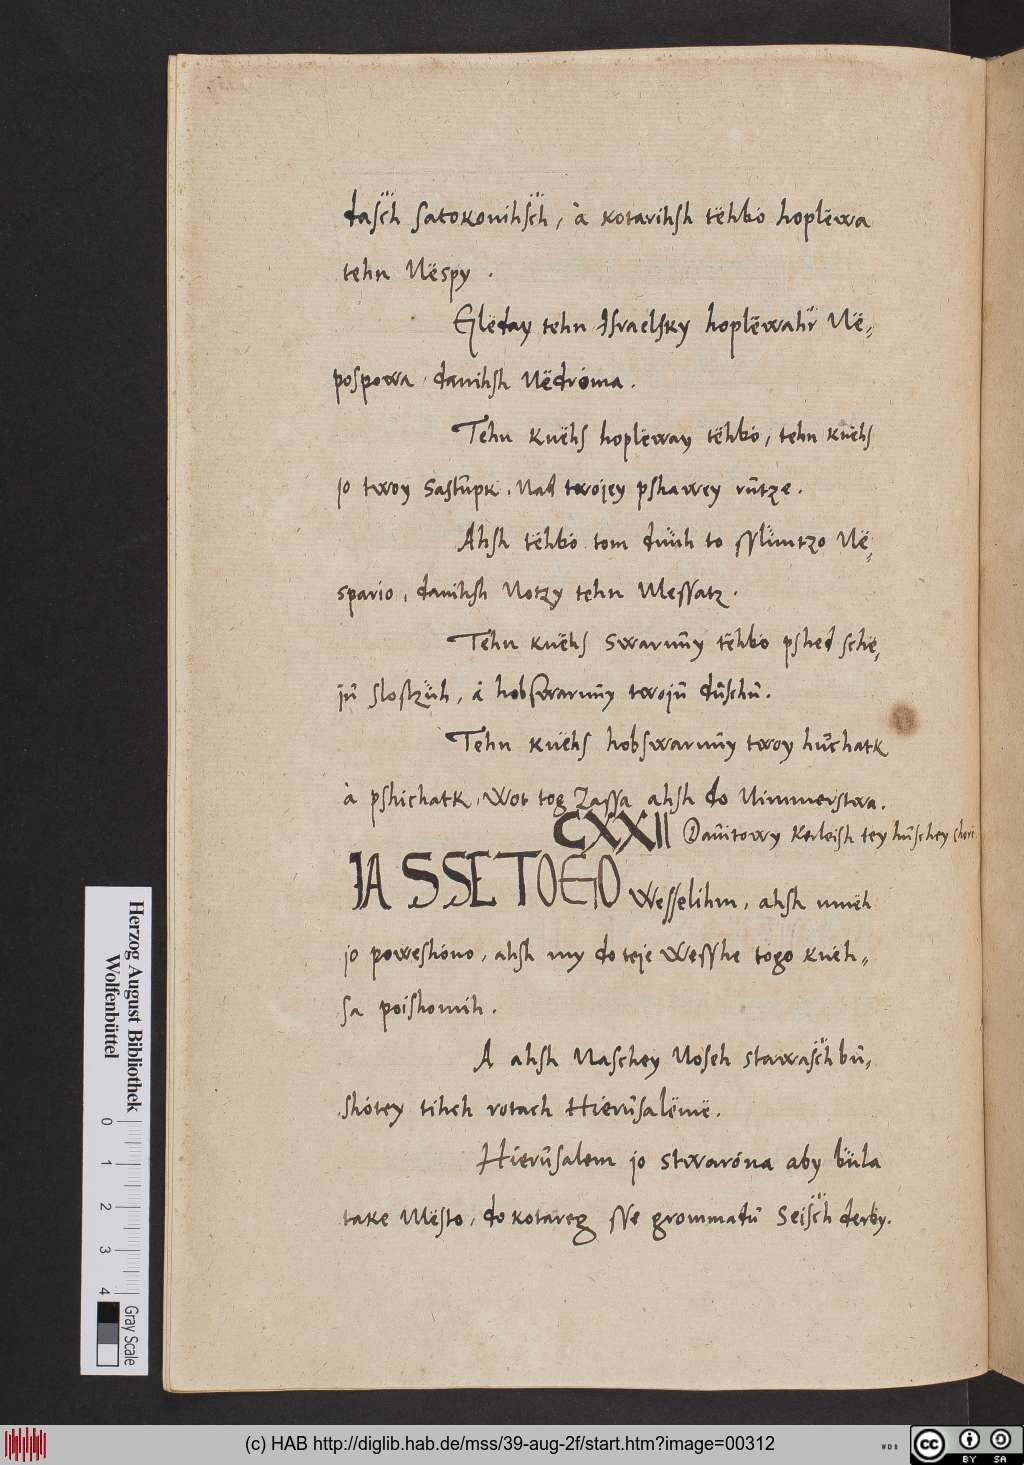 dasch satokonihsch, à kotarihsh tëhbó hoplëwa
tehn Nëspy .
Gleday tehn Israelsky hoplëwahr Në,,
pospowa danihsh Nëdróma .
Tehn Knëhs hoplëway tëhbó, tehn knëhs
jo twoy Sastŭpk, Nad twójey pshawey rŭtze .
Ahsh tëhbó tom dnüh to sslüntzo Në,,
spario, danihsh Notzy tehn Messatz .
Tehn knëhs Swarnuy tëhbó pshed sche,,
jŭ slostzüh, à hobswarnuy twojŭ dŭschŭ .
Tehn knëhs hobswarnuy twoy hŭchatk
à pshichatk, Wot tog Zassa ahsh do Nimmerstwa .
CXXII Dawitowy Kerleish tey hŭschey sheri
JA SSE TOGO Wesselihm, ahsh mnëh
jo poweshóno, ahsh my do teje Wesshe togo knëh,,
sa poishomih .
A ahsh Naschey Noseh stawasch bŭ,,
shótey tihch rotach Hierŭsalëmë .
Hierŭsalem jo stwaróna aby büla
take Mësto, do kotareg sse grommadŭ Seisch derby .
Herzog August Bibliothek
Wolfenbüttel
0 1 2 3 4 Gray Scale
(c) HAB http://diglib.hab.de/mss/39-aug-2f/start.htm?image=00312
WDB
cc BY SA